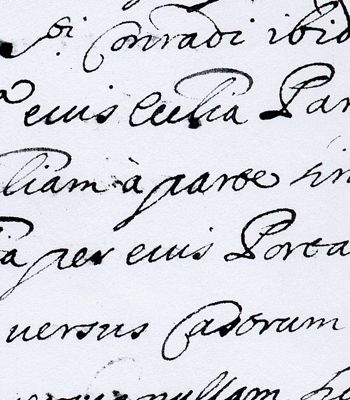 Sti Conradi ibid
eius Cecilia Par
liam à parte sin
a per eius Porta
uersus Castrum
nullam